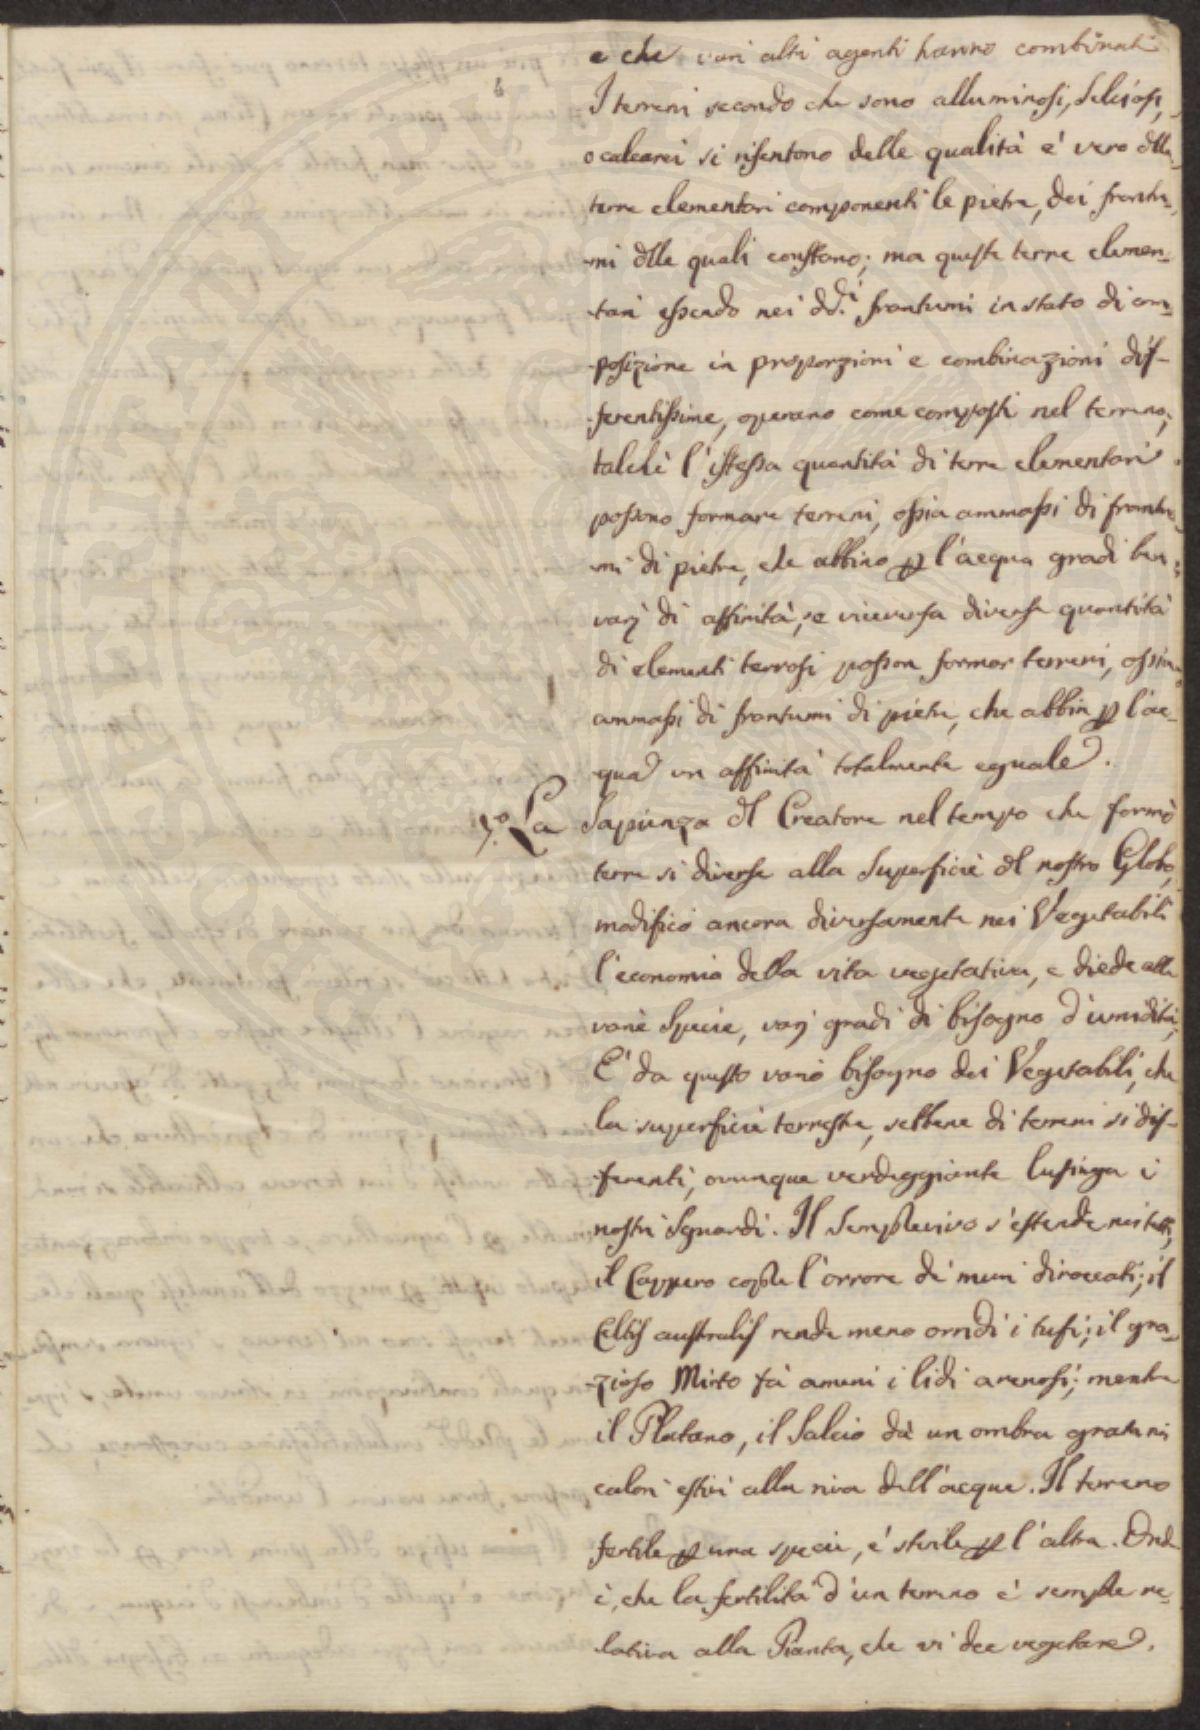 e che vari altri agenti hanno combinati
I terreni secondo che sono alluminosi, selciosi,
o calcarei si risentono delle qualità è vero dlla
terre elementari componenti le pietre, dei frantu-
mi dlle quali constano; ma queste terre elemen-
tari essendo nei dd.i frantumi in stato di com-
posizione in proporzioni e combinazioni dif-
ferentissime, operano come composti nel terreno;
talchè l'istessa quantità di terre elementari
possono formare terreni, ossia ammassi di frantu-
mi di pietre, che abbino p l'acqua gradi ben
varj di affinità, e viceversa diverse quantità
di elementi terrosi posson formar terreni, ossia
ammassi di frantumi di pietre, che abbin p l'ac-
qua un affinità totalmente eguale.
5.o La Sapienza dl Creatore nel tempo che formò
terre si diverse alla Superficie dl nostro Globo,
modificò ancora diversamente nei Vegetabili
l'economia della vita vegetativa, e diede alle
varie Specie, varj gradi di bisogno d'umidità;
E' da questo vario bisogno dei Vegetabili, che
la superficie terrestre, sebbene di terreni si dif-
ferenti, ovunque verdeggiante lusinga i
nostri sguardi. Il Semprevivo s'estende nei tetti;
il Cappero copre l'orrore de' muri diroccati; il
Celtis australis rende meno orridi i tufi; il gra-
zioso Mirto fà ameni i lidi arenosi; mentre
il Platano, il Salcio dà un ombra grata ni
calori estivi alla riva dell'acque. Il terreno
fertile p una specie, è sterile p l'altra. Ond
è, che la fertilità d'un terreno è sempre re-
lativa alla Pianta, che vi dee vegetare.